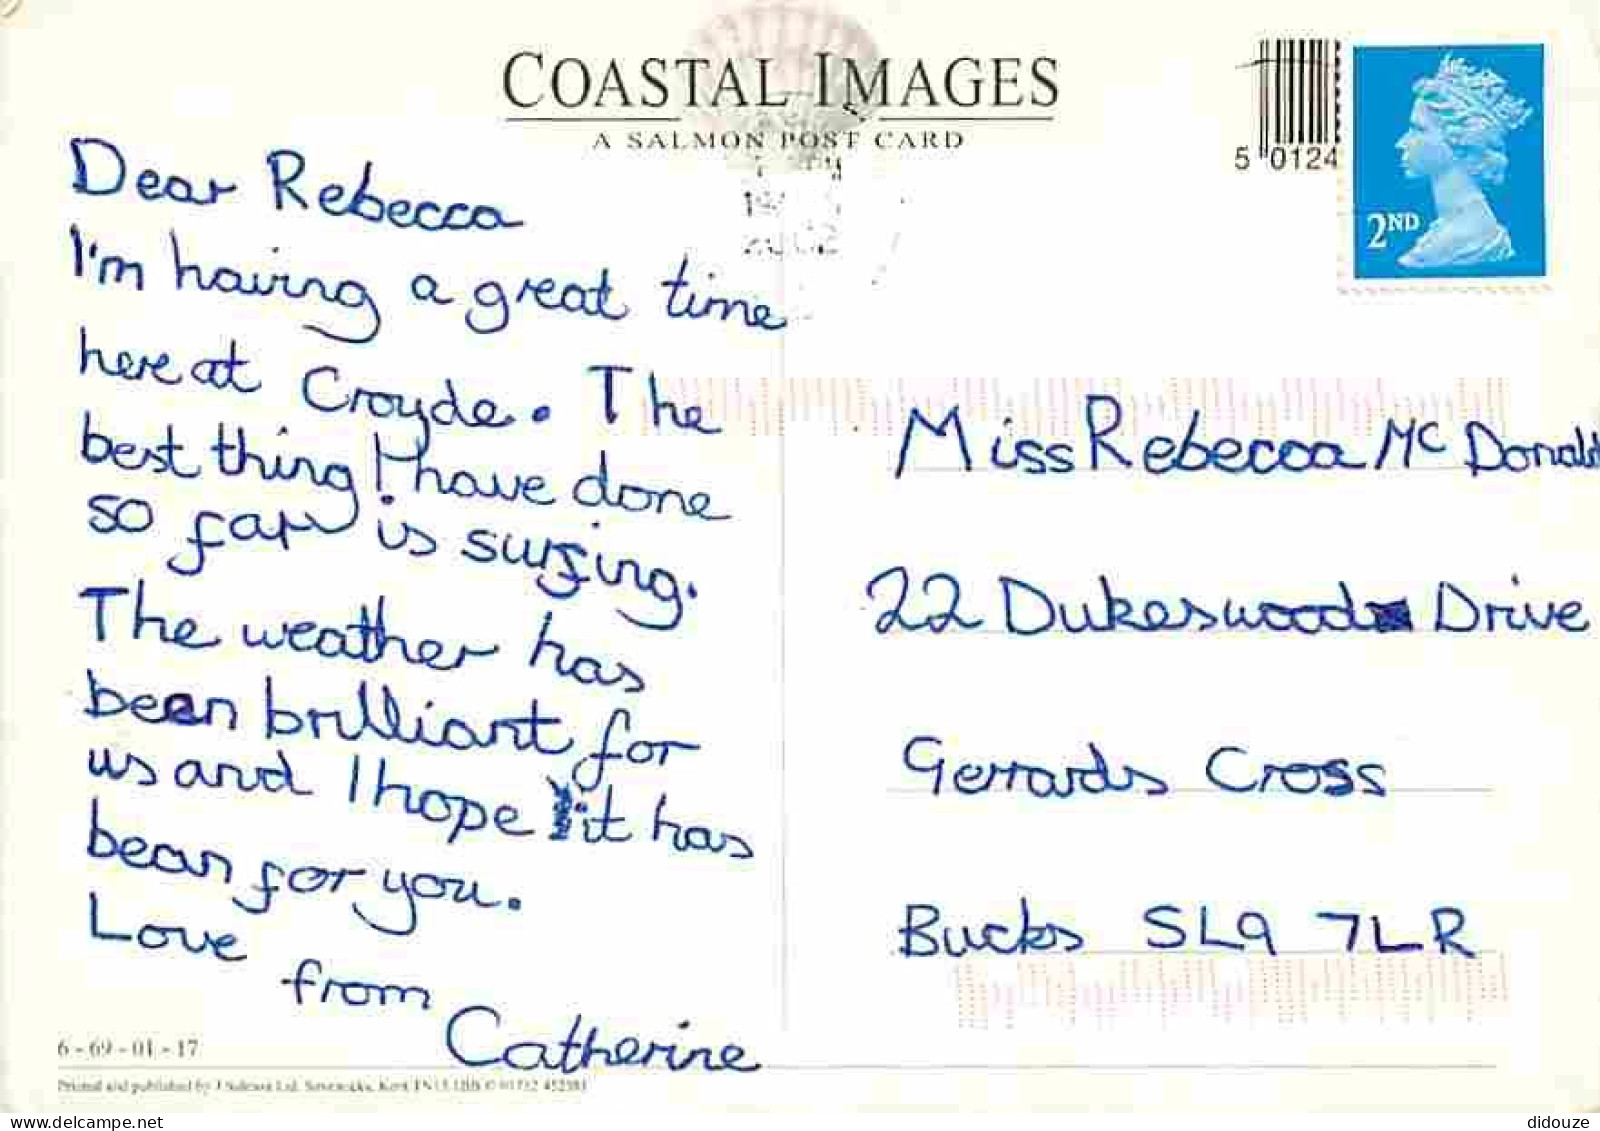 COASTAL IMAGES
A SALMON POST CARD
5 0124
2ND
2002
Dear Rebecca
I'm having a great time
here at Croyde. The
best thing I have done
so far is surfing.
The weather has
been brilliant for
us and I hope it has
been for you.
Love from
Catherine
Miss Rebecca Mc Donald
22 Dukeswood Drive
Gerrards Cross
Bucks SL9 7LR
6 - 69 - 01 - 17
Printed and published by J Salmon Ltd. Sevenoaks, Kent TN13 1BB © 01732 452381
www.delcampe.net
didouze